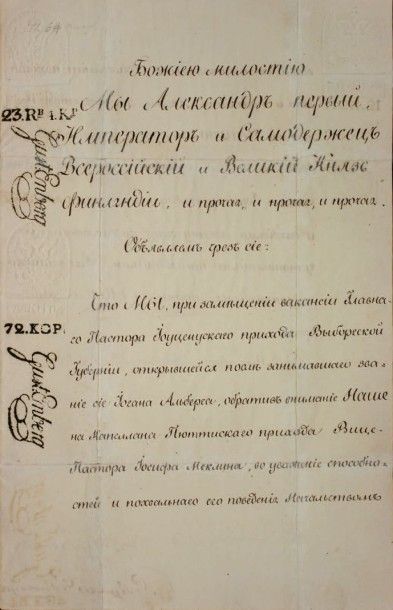 Божіею милостію
Мы Александръ первый,
Императоръ и Самодержецъ
Всероссійскій и Великій Князь
Финляндіи, и прочая, и прочая, и прочая.
Объявляемъ чрезъ сіе:
Что МЫ, при замѣщеніи ваканціи Главна-
го Пастора прихода Выборгской
Губерніи, открывшейся послѣ занимавшаго зва-
ніе сіе Іогана Амберга, обративъ вниманіе Наше
на Капеллана Пюттискаго прихода Вице-
Пастора Іосифа Меклина, во уваженіе способно-
стей и похвальнаго его поведенія Начальствомъ
23.Rᴮ 1.Kᴾ
72.KOP: